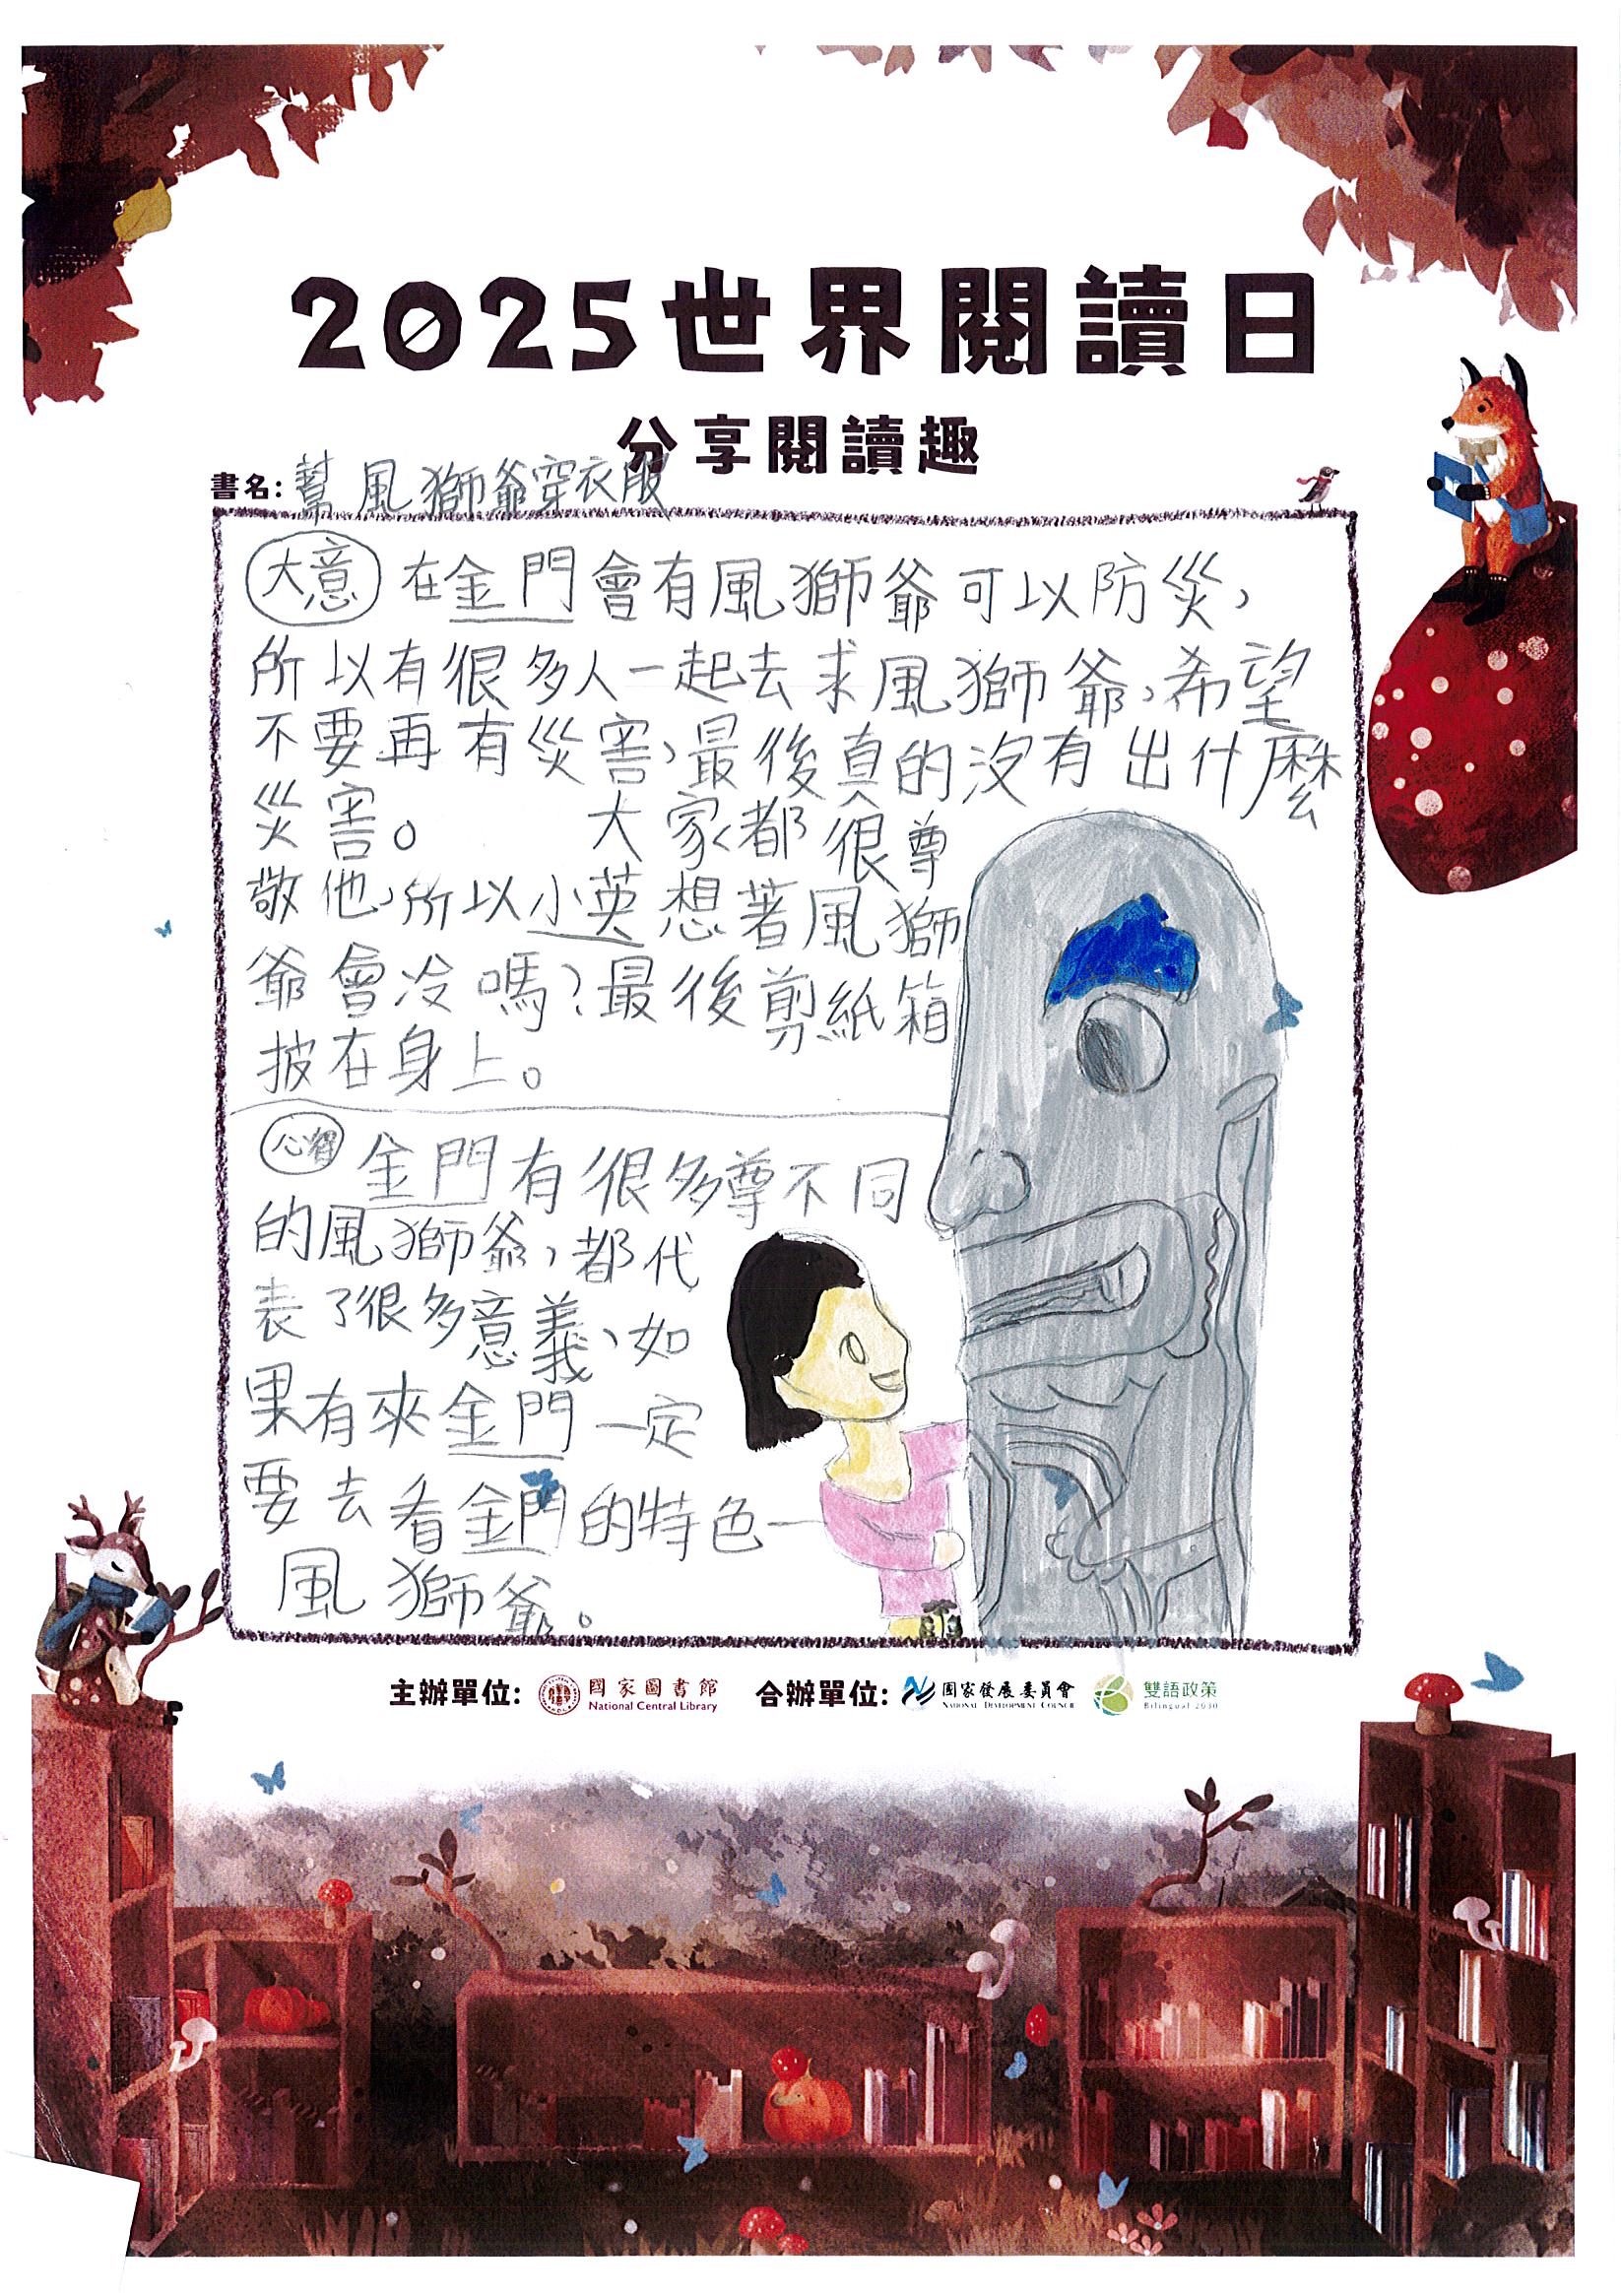 2025世界閱讀日
分享閱讀趣
書名: 幫風獅爺穿衣服
大意 在金門會有風獅爺可以防災,
所以有很多人一起去求風獅爺,希望
不要再有災害,最後真的沒有出什麼
災害。 大家都很尊
敬他,所以小英想著風獅
爺會冷嗎?最後剪紙箱
披在身上。
心得 金門有很多尊不同
的風獅爺,都代
表了很多意義,如
果有來金門一定
要去看金門的特色—
風獅爺。
主辦單位: 國家圖書館 National Central Library 合辦單位: 國家發展委員會 National Development Council 雙語政策 Bilingual 2030